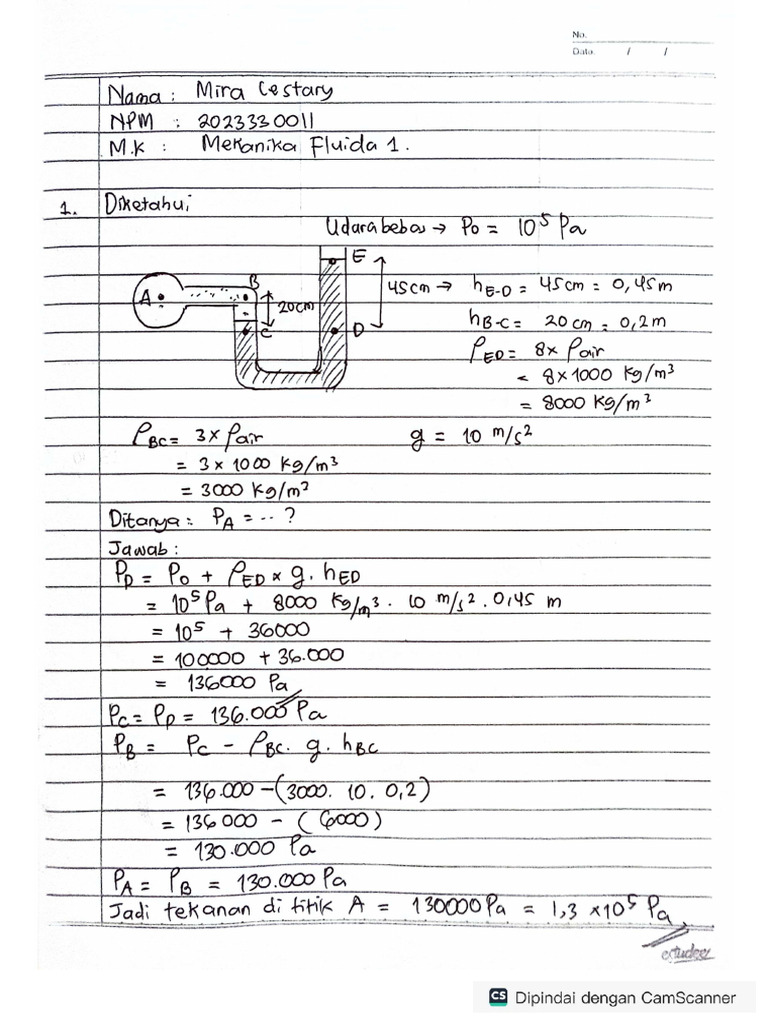 No.
Date. / /
Nama : Mira Cestary
NPM : 2023330011
M.K : Mekanika Fluida 1.
1. Diketahui;
Udara bebas → Po = 10⁵ Pa
E
45cm → hE-D = 45cm = 0,45m
A B
20cm
hB-C = 20 cm = 0,2m
C D
ρED = 8 x ρair
= 8 x 1000 kg/m³
= 8000 kg/m³
ρBC = 3 x ρair g = 10 m/s²
= 3 x 1000 kg/m³
= 3000 kg/m³
Ditanya : PA = ... ?
Jawab :
PD = Po + ρED x g . hED
= 10⁵ Pa + 8000 kg/m³ . 10 m/s² . 0,45 m
= 10⁵ + 36000
= 100000 + 36.000
= 136000 Pa
PC = PD = 136.000 Pa
PB = PC - ρBC . g . hBC
= 136.000 - (3000 . 10 . 0,2)
= 136000 - (6000)
= 130.000 Pa
PA = PB = 130.000 Pa
Jadi tekanan di titik A = 130000 Pa = 1,3 x 10⁵ Pa
estudee
CS Dipindai dengan CamScanner